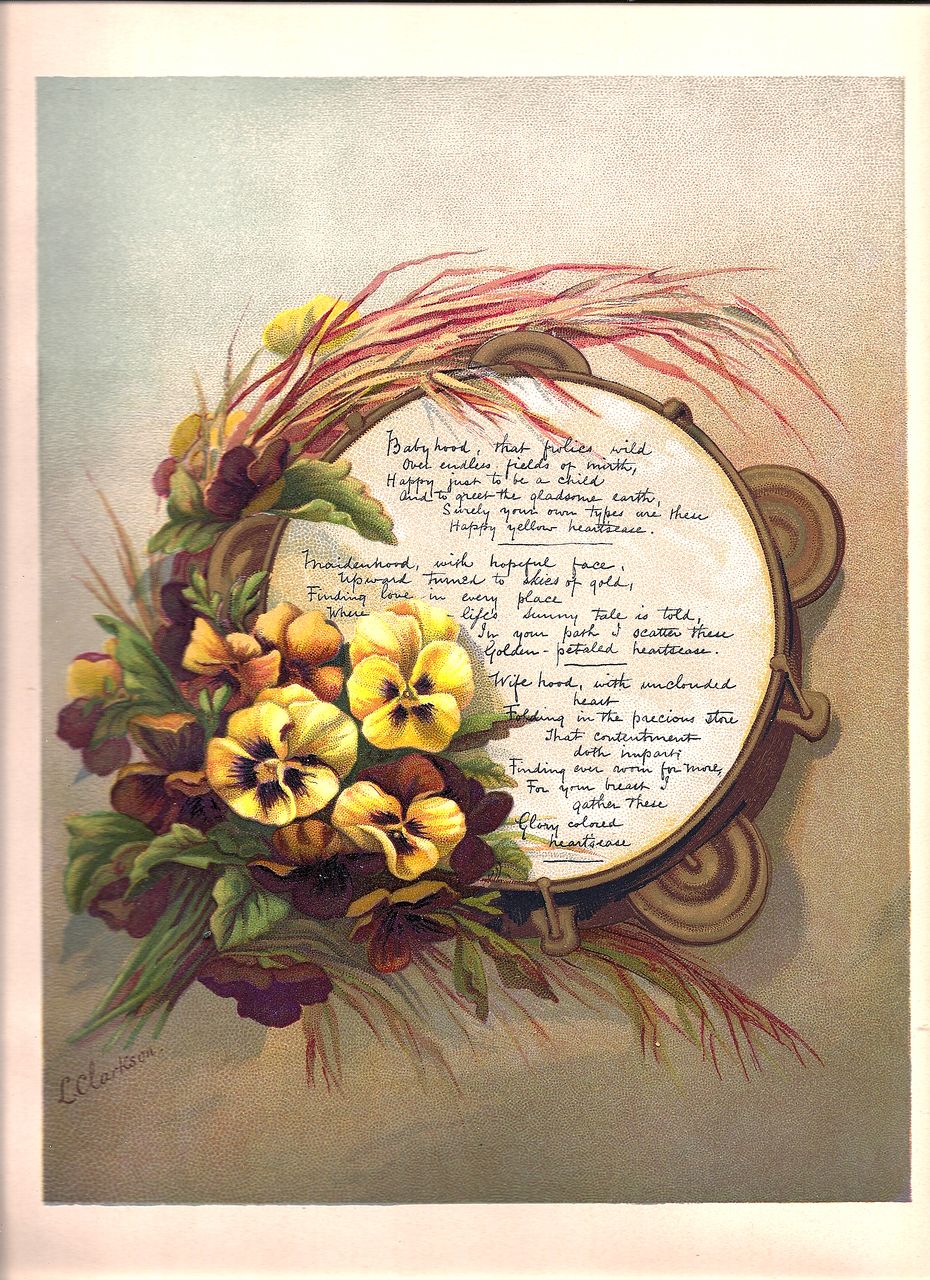 Babyhood, that frolics wild
Over endless fields of mirth,
Happy just to be a child
And to greet the gladsome earth,
Surely your own types are these
Happy yellow heartsease.
Maidenhood, with hopeful face,
Upward turned to skies of gold,
Finding love in every place
Where life's sunny tale is told,
In your path I scatter these
Golden-petaled heartsease.
Wifehood, with unclouded
heart
Folding in the precious store
That contentment
doth impart;
Finding ever room for more,
For your breast I
gather these
Glory colored
heartsease
L. Clarkson.